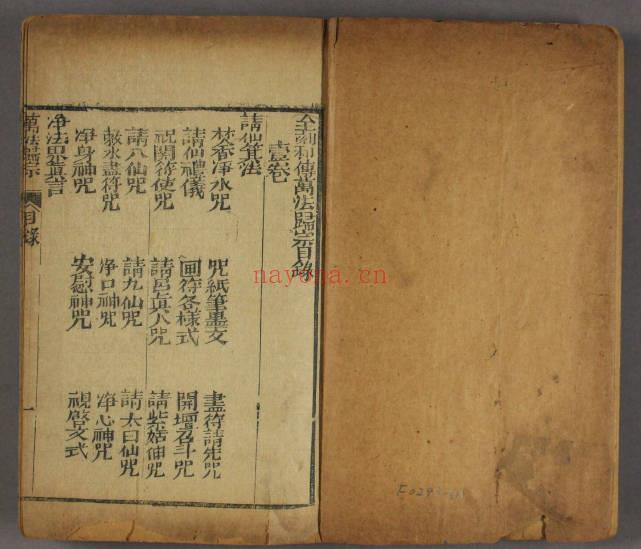 全訂秘傳萬法歸宗目錄
壹卷
請仙箕法
焚香凈水咒 咒紙筆墨文 畫符請先咒
請仙禮儀 画符各樣式 開壇召斗咒
祝開符使咒 請呂真人咒 請紫姑神咒
請八仙咒 請九仙咒 請太白仙咒
敕水畫符咒 凈口神咒 凈心神咒
凈身神咒 安慰神咒 視啓文式
凈法界真言
萬法歸宗 目錄 一
nayona.cn